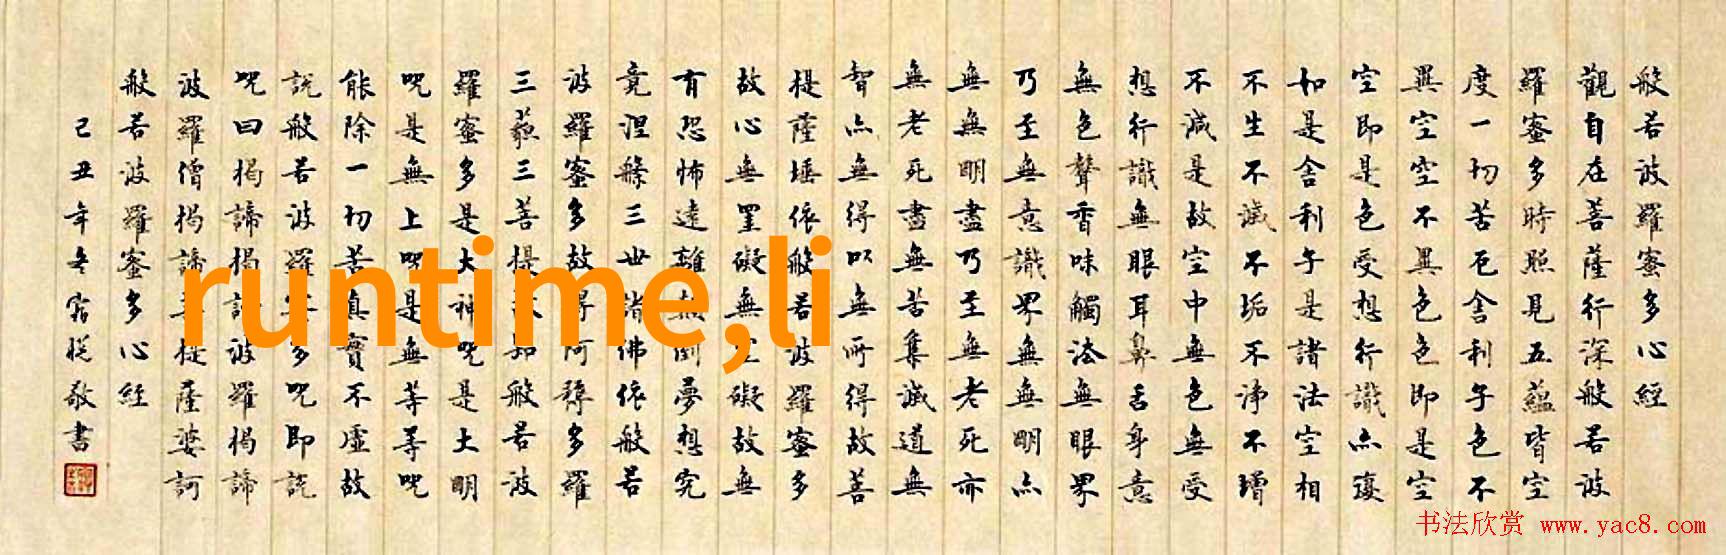 般若波羅蜜多心經
觀自在菩薩行深般若波
羅蜜多時照見五蘊皆空
度一切苦厄舍利子色不
異空空不異色色即是空
空即是色受想行識亦復
如是舍利子是諸法空相
不生不滅不垢不淨不增
不減是故空中無色無受
想行識無眼耳鼻舌身意
無色聲香味觸法無眼界
乃至無意識界無無明亦
無無明盡乃至無老死亦
無老死盡無苦集滅道無
智亦無得以無所得故菩
提薩埵依般若波羅蜜多
故心無罣礙無罣礙故無
有恐怖遠離顛倒夢想究
竟涅槃三世諸佛依般若
波羅蜜多故得阿耨多羅
三藐三菩提故知般若波
羅蜜多是大神呪是大明
呪是無上呪是無等等呪
能除一切苦真實不虛故
說般若波羅蜜多呪即說
呪曰揭諦揭諦波羅揭諦
波羅僧揭諦菩提薩婆訶
般若波羅蜜多心經
己丑年冬敬書
runtime,li
书法欣赏 www.yac8.com